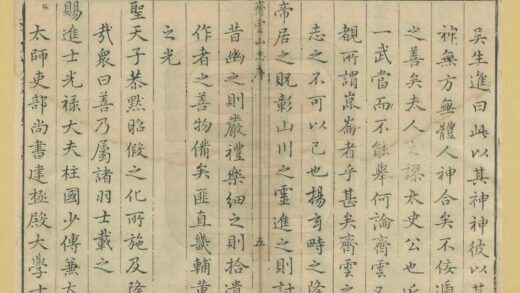 吳生進曰此以其神神彼以其
神無方無體人神合矣不佞
之善矣夫人之謬太史公也
一武當而不能舉何論齊雲
覩所謂崑崙者乎甚矣齊雲之
志之不可以已也揚旹畤之隆
帝居之貺彰山川之靈進之則討
齊雲山志序
五
昔幽之則嚴禮樂細之則拾遺
作者之善物備矣匪直畿輔
之光
聖天子恭默昭假之化所施及隆
哉眾曰善乃屬諸羽士載之
賜進士光祿大夫柱國少傅兼太
太師吏部尚書建極殿大學士